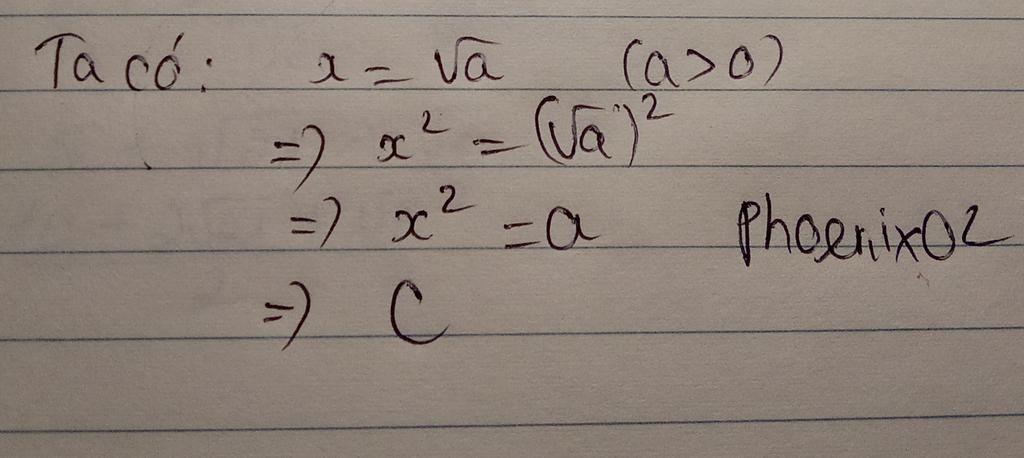 Ta có: x = √a (a>0)
=> x² = (√a)²
=> x² = a Phoenix02
=> C